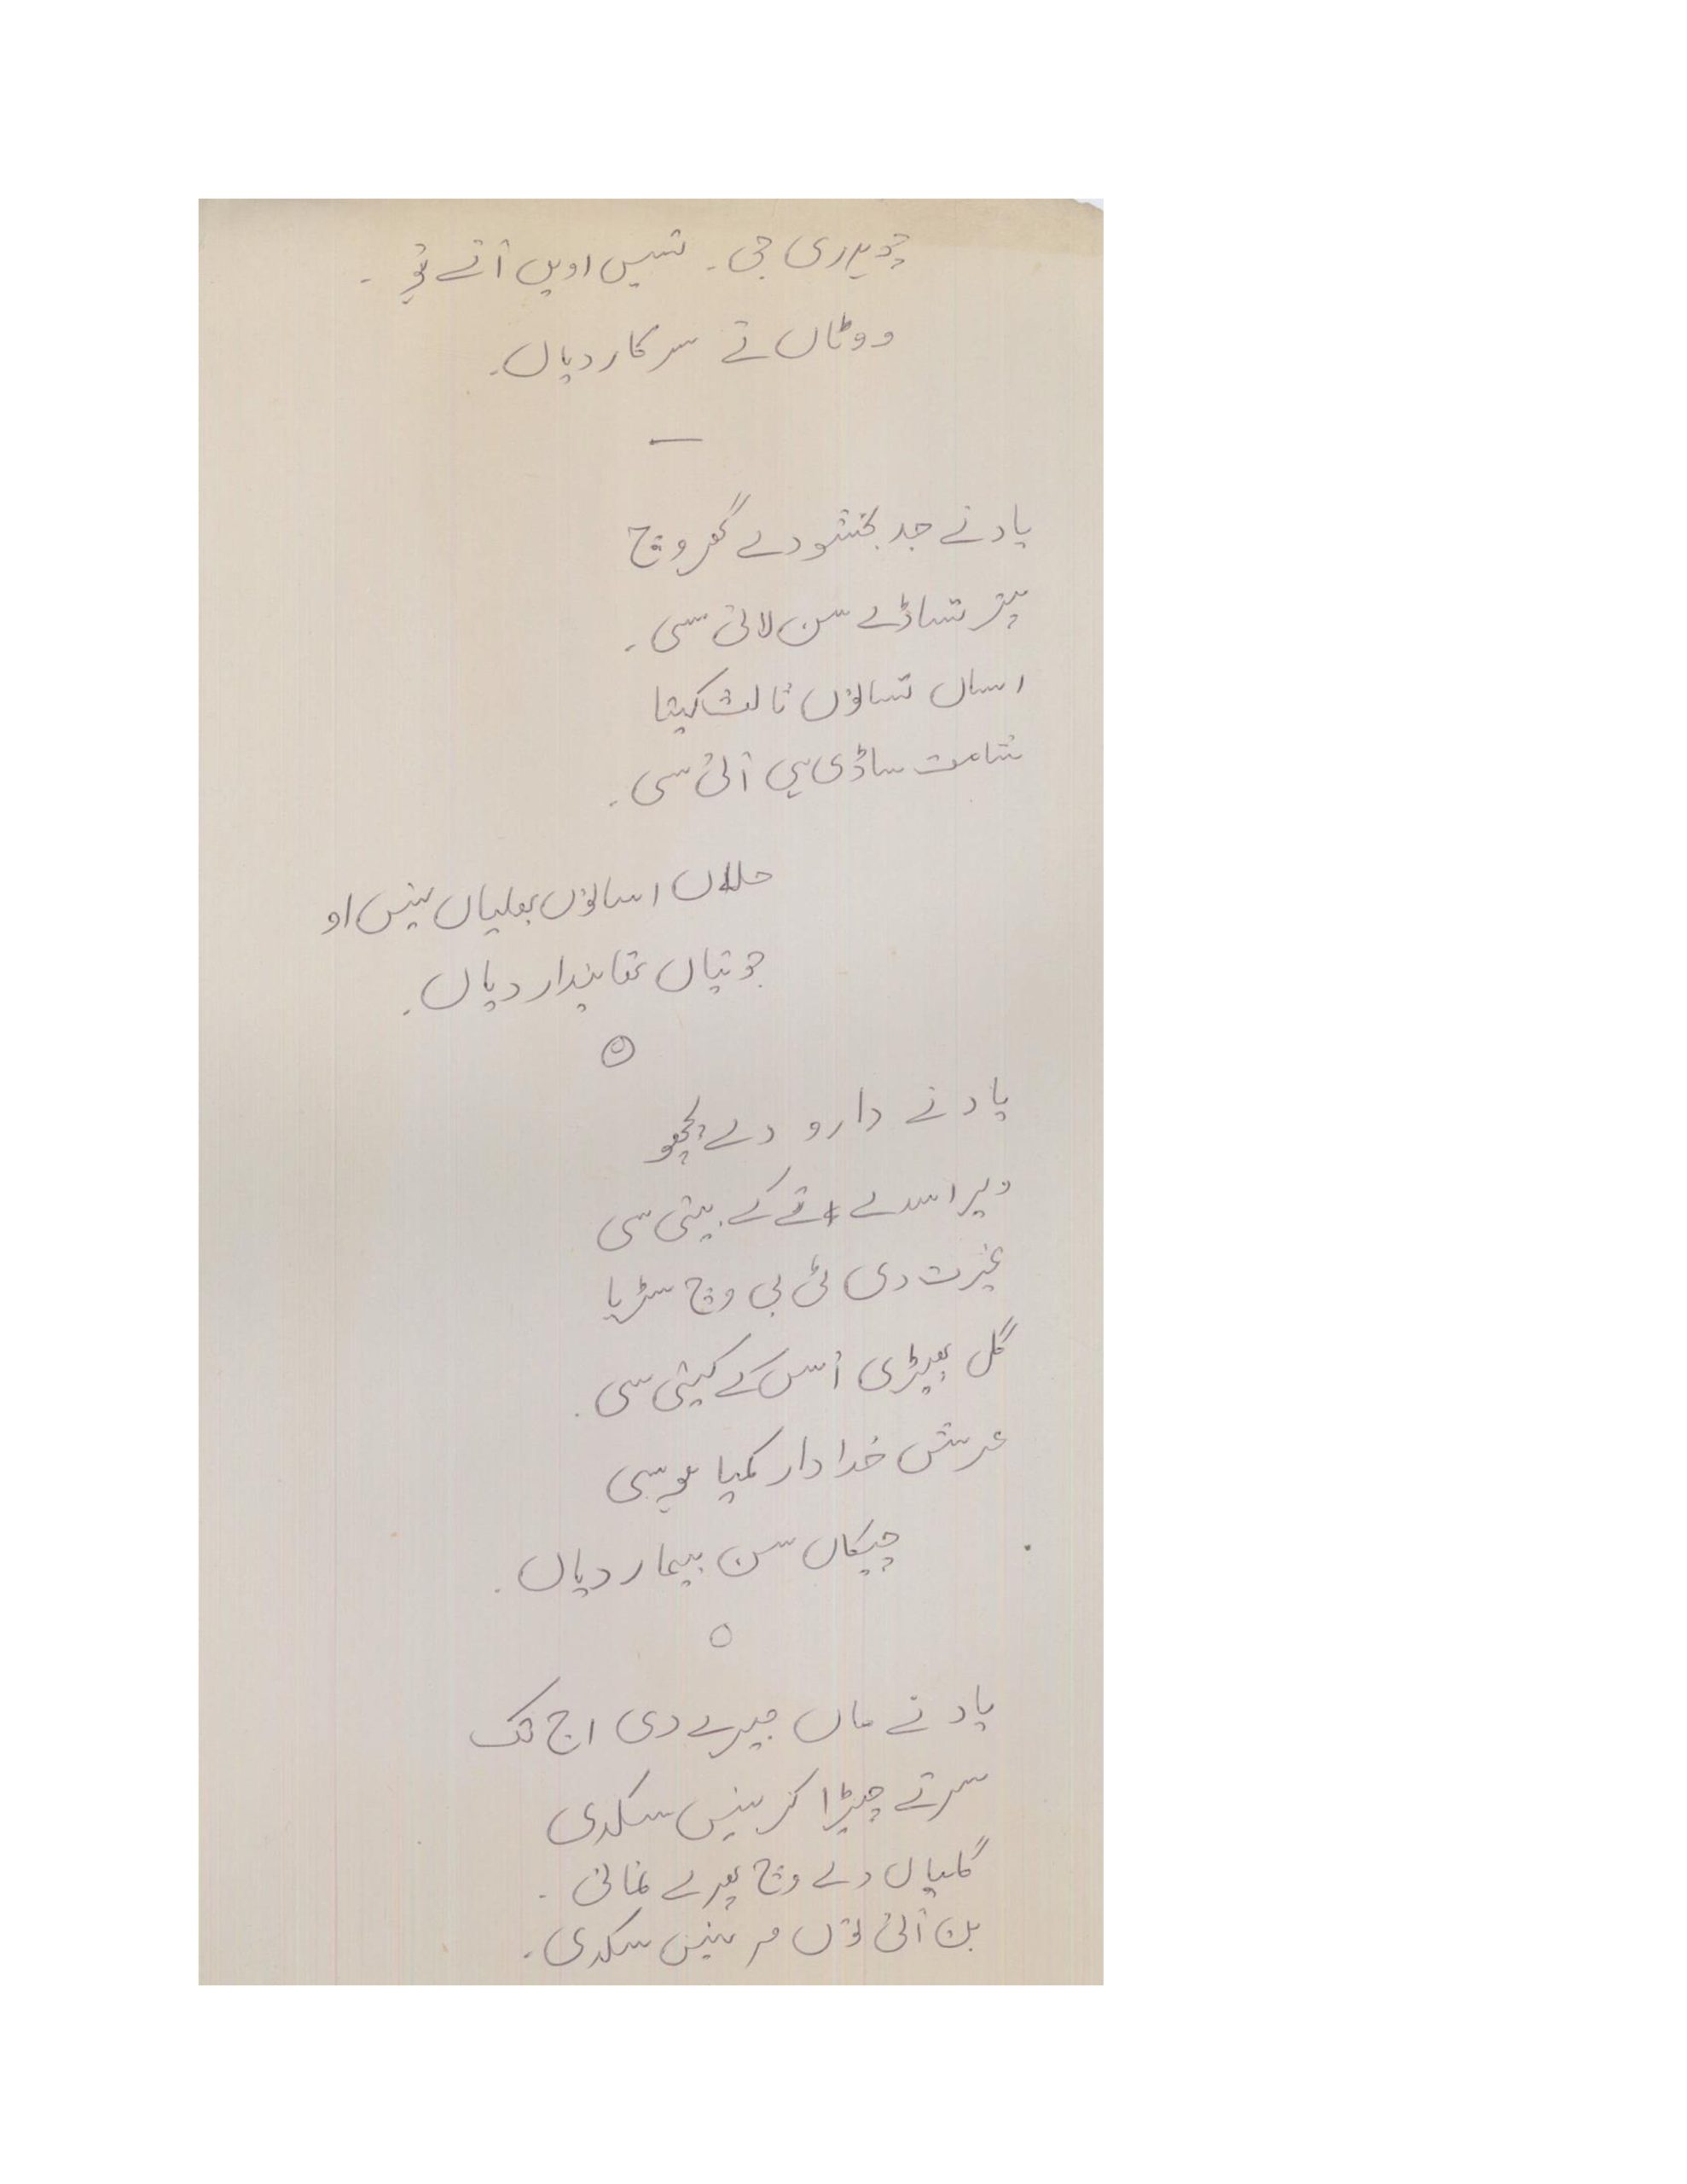 چوہدری جی۔ تسیں اوہی آتے نیں۔
ووٹاں تے سرکار دیاں۔
یاد نے جد بخشو دے گھر وچ
پتر تساڈے سن لائی سی۔
اساں تساؤں ثالث کیتا
شامت ساڈی ہی آئی سی۔
اساؤں بھلیاں نیئں او
جوتیاں تھانیدار دیاں۔
یاد نے دارو دے
ویر اسدے تے کے بیتی سی
غیرت دی ٹی بی وچ سڑیا
گل بھیڑی اس کے کیتی سی۔
عرش خدا دا رکمیا ہوسی
چیکاں سن بیمار دیاں۔
یاد نے ماں جیرے دی اج تک
سر تے چیڑا کر نیئں سکدی
گلیاں دے وچ پھرے نمانی۔
بن آئی توں مر نیئں سکدی۔